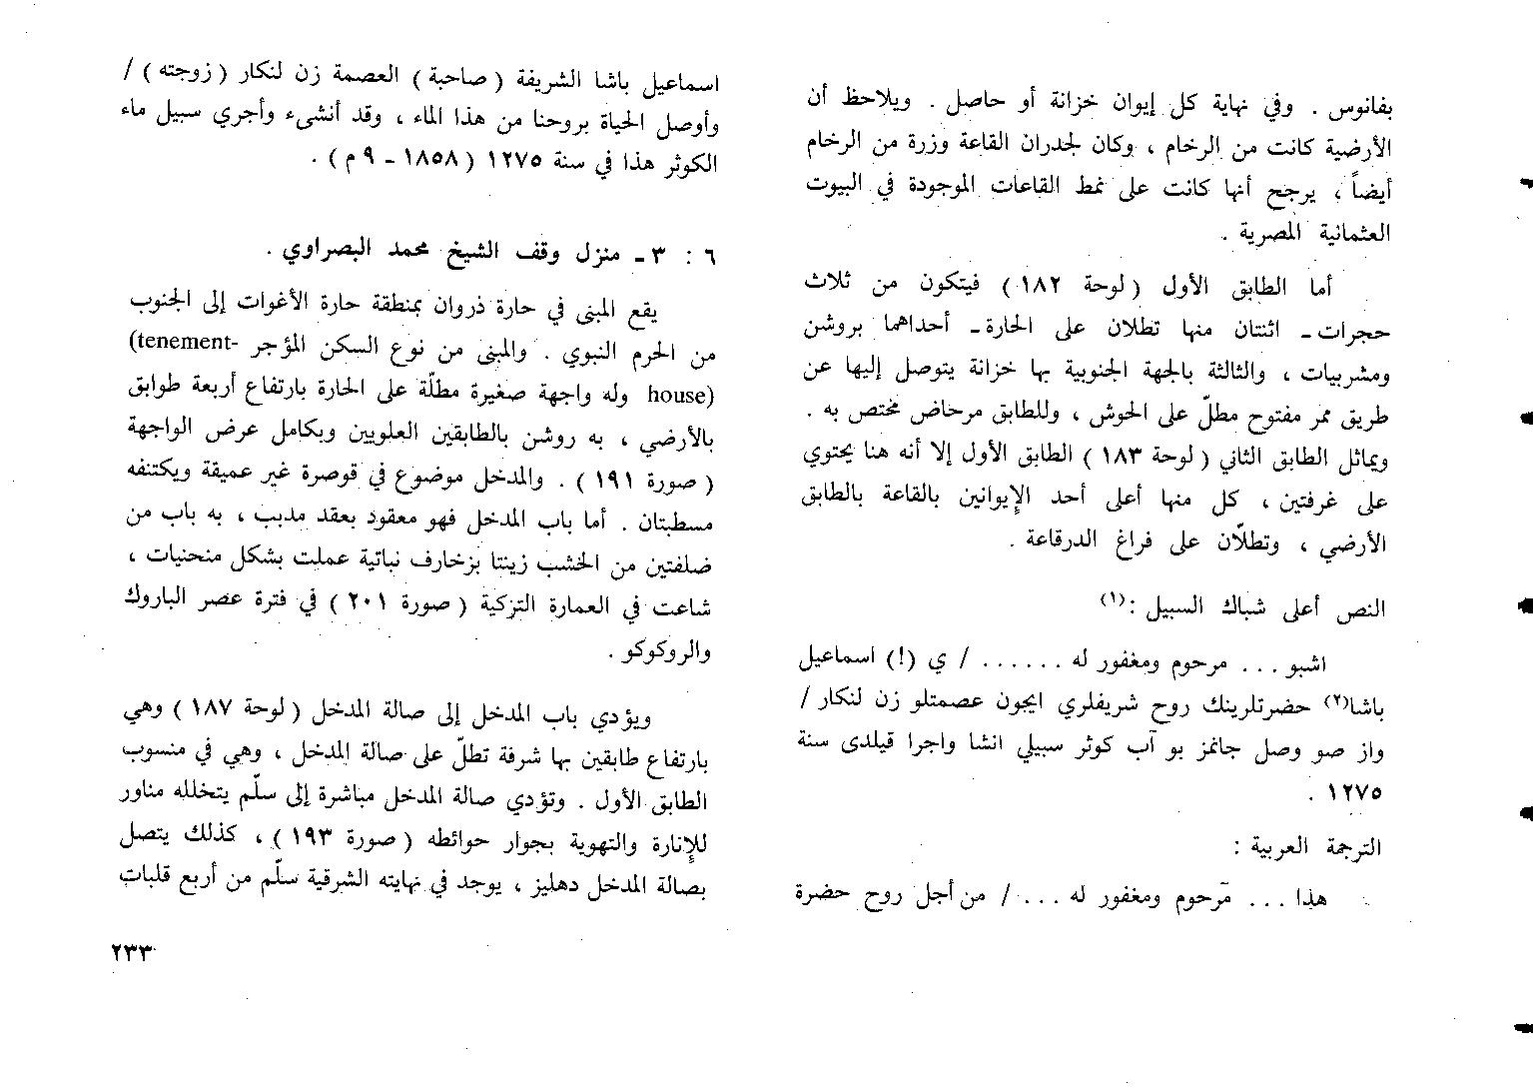 بفانوس . وفي نهاية كل إيوان خزانة أو حاصل . ويلاحظ أن
الأرضية كانت من الرخام ، وكان لجدران القاعة وزرة من الرخام
أيضاً ، يرجح أنها كانت على نمط القاعات الموجودة في البيوت
العثمانية المصرية .
أما الطابق الأول ( لوحة ١٨٢ ) فيتكون من ثلاث
حجرات ـ اثنتان منها تطلان على الحارة ـ أحداهما بروشن
ومشربيات ، والثالثة بالجهة الجنوبية بها خزانة يتوصل إليها عن
طريق ممر مفتوح مطلّ على الحوش ، وللطابق مرحاض مختص به .
ويماثل الطابق الثاني ( لوحة ١٨٣ ) الطابق الأول إلا أنه هنا يحتوي
على غرفتين ، كل منها أعلى أحد الإيوانين بالقاعة بالطابق
الأرضي ، وتطلّان على فراغ الدرقاعة .
النص أعلى شباك السبيل :(١)
اشبو ... مرحوم ومغفور له ...... / ي (!) اسماعيل
باشا(٢) حضرتلرينك روح شريفلري ايجون عصمتلو زن لنكار /
واز صو وصل جانمز بو آب كوثر سبيلي انشا واجرا قيلدى سنة
١٢٧٥ .
الترجمة العربية :
هذا ... مرحوم ومغفور له ... / من أجل روح حضرة
اسماعيل باشا الشريفة ( صاحبة ) العصمة زن لنكار ( زوجته ) /
وأوصل الحياة بروحنا من هذا الماء ، وقد أنشىء وأجري سبيل ماء
الكوثر هذا في سنة ١٢٧٥ ( ١٨٥٨ ـ ٩ م ) .
٦ : ٣ ـ منزل وقف الشيخ محمد البصراوي .
يقع المبنى في حارة ذروان بمنطقة حارة الأغوات إلى الجنوب
من الحرم النبوي . والمبنى من نوع السكن المؤجر (tenement-
house) وله واجهة صغيرة مطلّة على الحارة بارتفاع أربعة طوابق
بالأرضي ، به روشن بالطابقين العلويين وبكامل عرض الواجهة
( صورة ١٩١ ) . والمدخل موضوع في قوصرة غير عميقة ويكتنفه
مسطبتان . أما باب المدخل فهو معقود بعقد مدبب ، به باب من
ضلفتين من الخشب زينتا بزخارف نباتية عملت بشكل منحنيات ،
شاعت في العمارة التركية ( صورة ٢٠١ ) في فترة عصر الباروك
والروكوكو .
ويؤدي باب المدخل إلى صالة المدخل ( لوحة ١٨٧ ) وهي
بارتفاع طابقين بها شرفة تطلّ على صالة المدخل ، وهي في منسوب
الطابق الأول . وتؤدي صالة المدخل مباشرة إلى سلّم يتخلله مناور
للإنارة والتهوية بجوار حوائطه ( صورة ١٩٣ ) ، كذلك يتصل
بصالة المدخل دهليز ، يوجد في نهايته الشرقية سلّم من أربع قلبات
٢٣٣